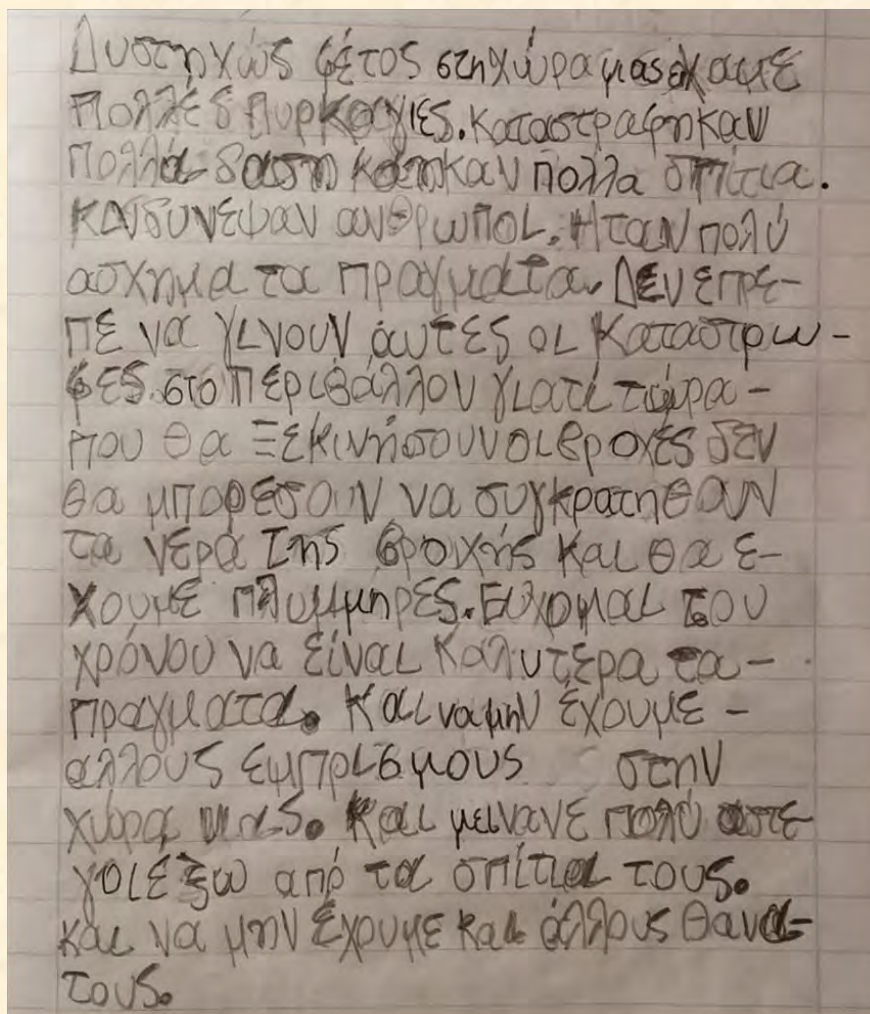 Δυστηχώς φέτος στη χώρα μας είχαμε
Πολλές Πυρκαγιές. Καταστραφηκαν
Πολλά δαση κάηκαν πολλα σπίτια.
Κινδυνεψαν ανθρωποι. Ηταν πολύ
ασχημα τα πραγματα. Δεν επρε-
πε να γινουν αυτές οι καταστρω-
φες στο περιβάλλον γιατί τώρα-
που θα Ξεκινήσουν οι βροχές δεν
θα μπορεσουν να συγκρατηθαν
τα νερα της βροχής και θα ε-
χουμε πλυμμηρες. Ευχομαι του
χρόνου να είναι καλυτερα τα-
πραγματα. Και να μην έχουμε -
αλλους εμπρισμους στην
χώρα μας. Και μεινανε πολύ αστε
γοι έξω από τα σπίτια τους.
και να μην έχουμε και άλλους θανα-
τους.